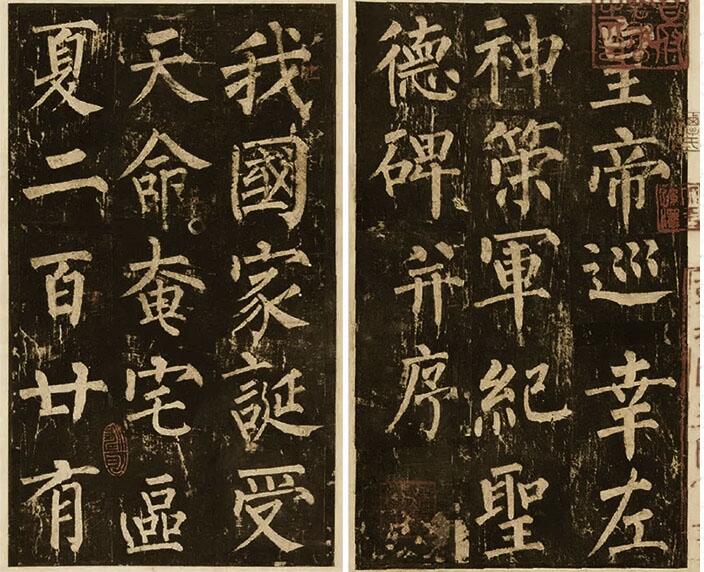 皇帝巡幸左
神策軍紀聖
德碑并序
我國家誕受
天命奄宅區
夏二百廿有